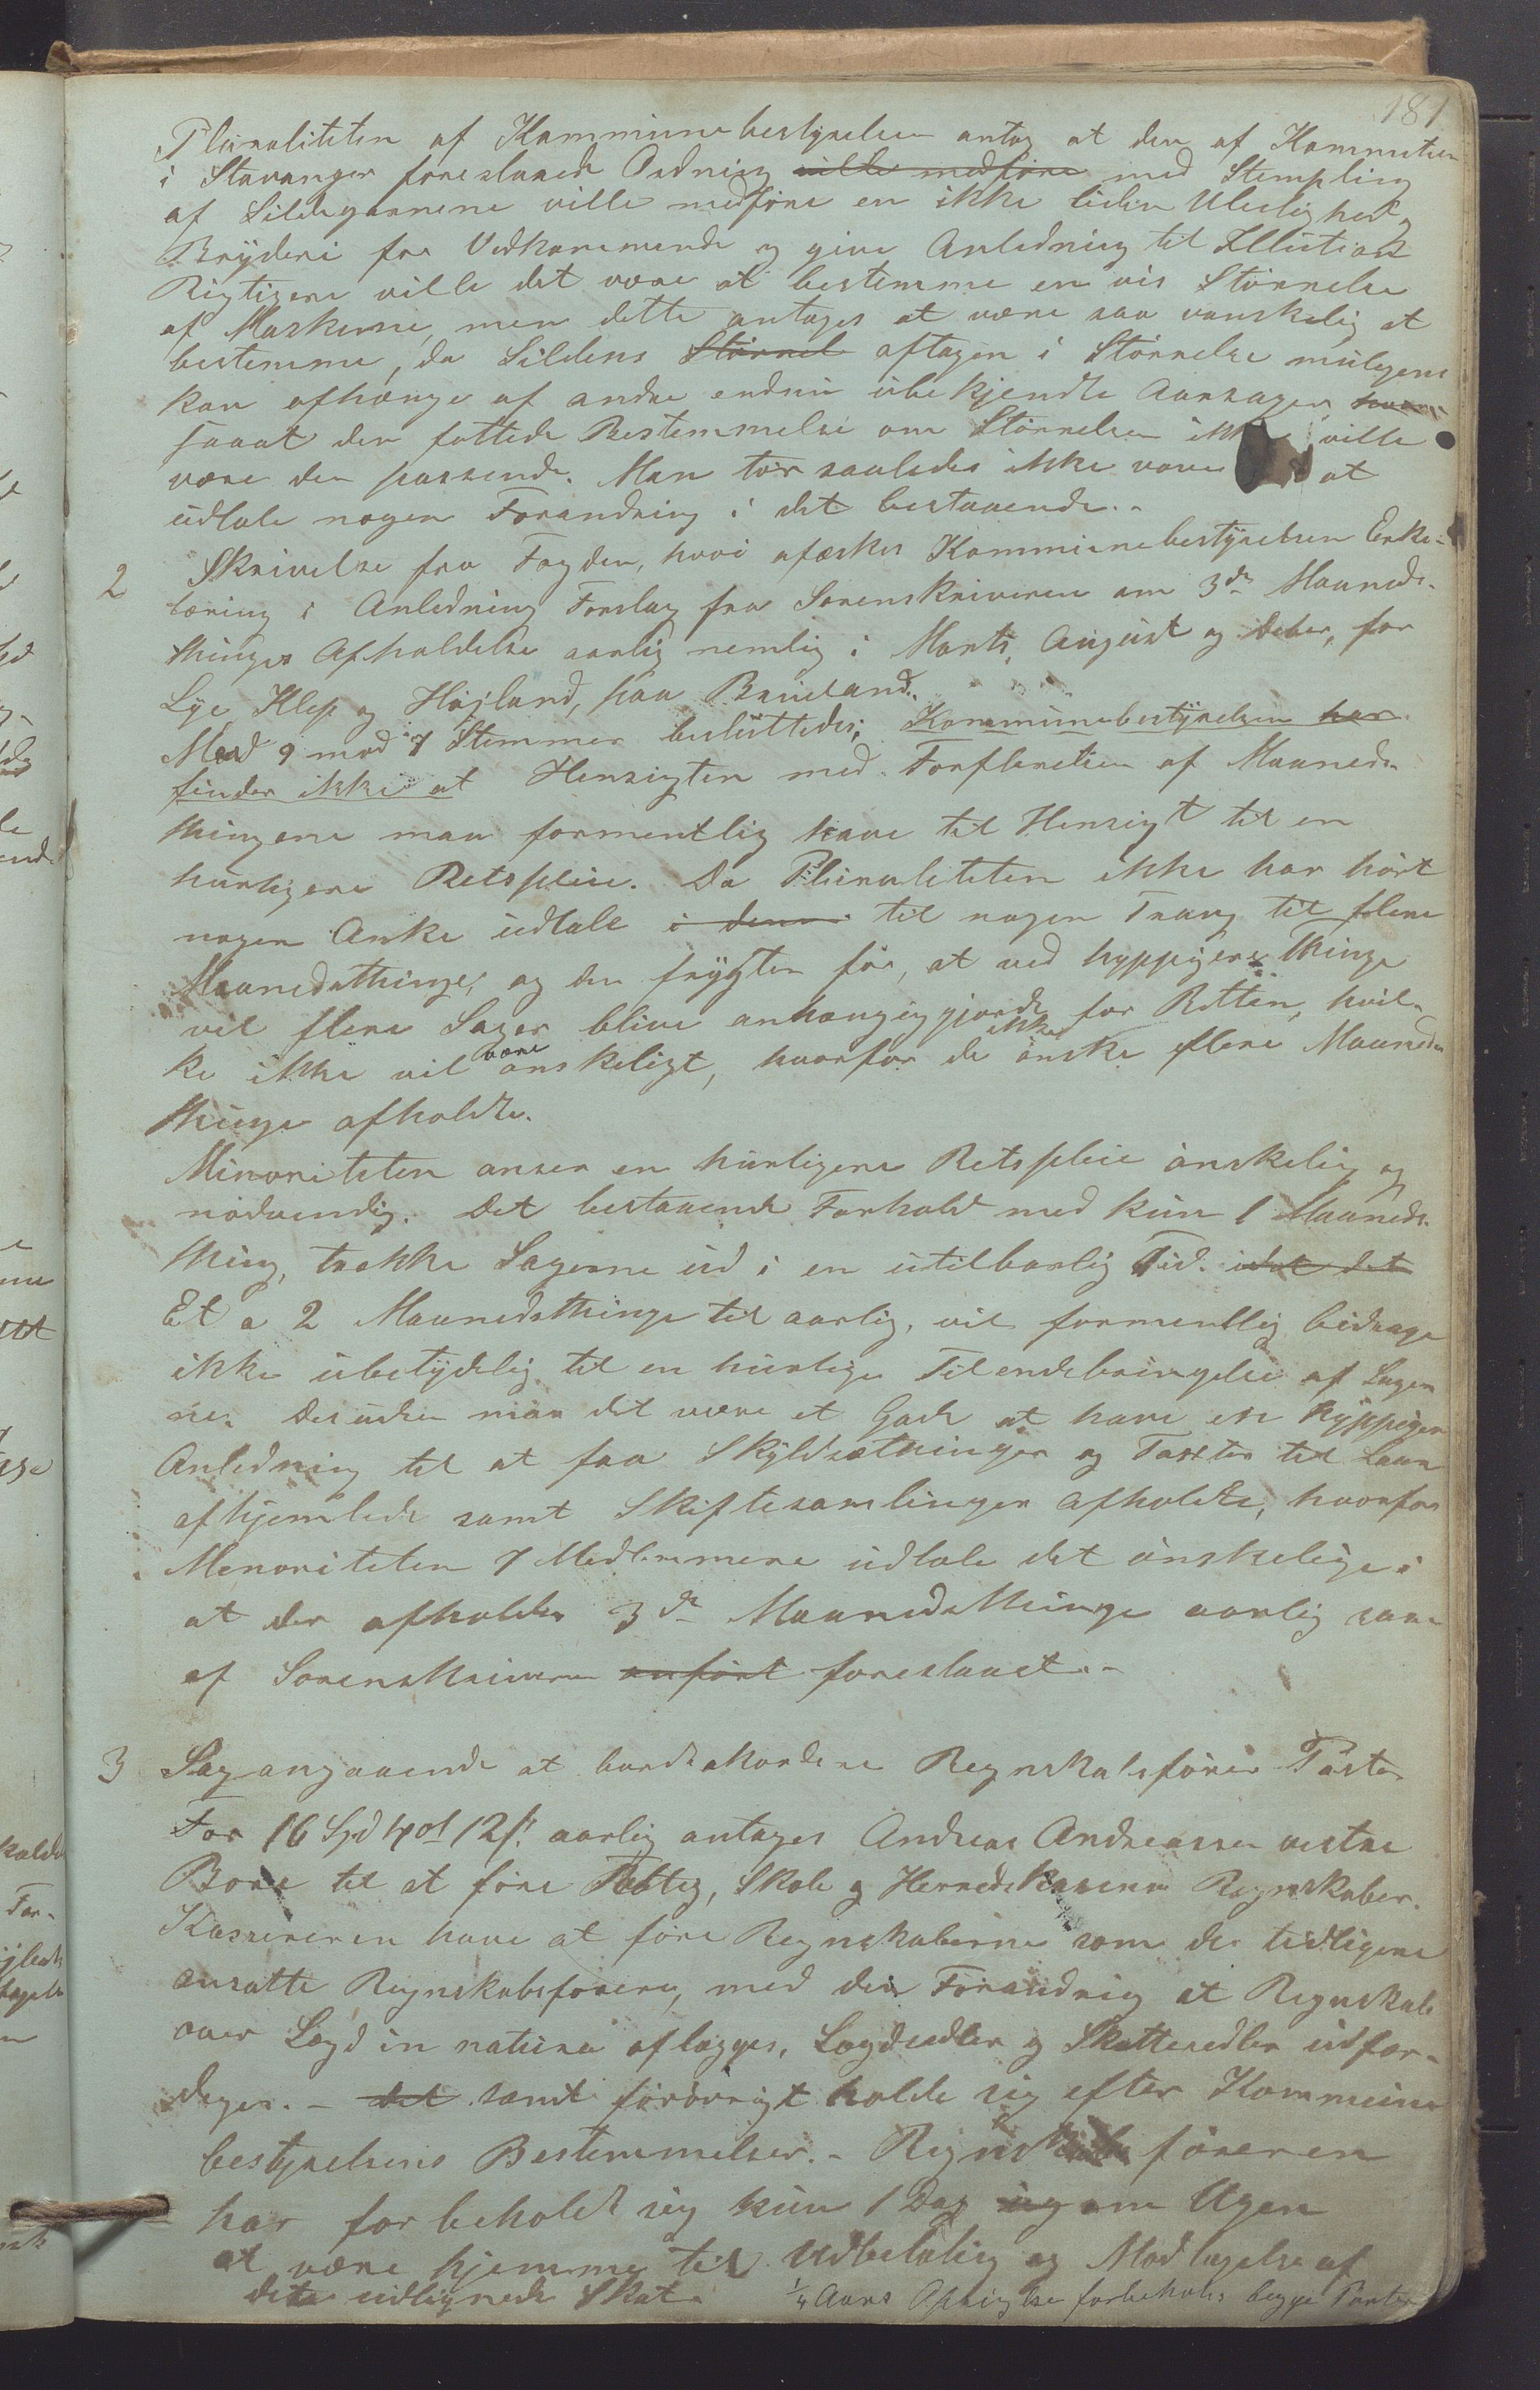 181
Pluraliteten af Kommunebestyrelsen antog at den af Kommiteen
i Stavanger foreslaaede Ordning ville medføre med Stempling
af Sildegarnene ville medføre en ikke liden Uleilighed og
Bryderi for Vedkommende og give Anledning til
Rigtigere ville det være at bestemme en vis Størrelse
af Maskerne, men dette antages at være saa vanskelig at
bestemme, da Sildens Størrel aftagen i Størrelse muligens
kan afhænge af andre endnu ubekjendte Aarsager,
saaat den fattede Bestemmelse om Størrelsen ikke ville
være den passende. Man tør saaledes ikke vove at
udtale nogen Forandring i det bestaaende.-
2 Skrivelse fra Fogden, hvori afæskes Kommunebestyrelsen Erkl-
læring i Anledning Forslag fra Sorenskriveren om 3de Maaneds-
thinges Afholdelse aarlig nemlig i Marts, August og Decber, for
Lye Klep og Højland, paa Brueland.
Med 9 mod 7 Stemmer besluttedes; Kommunebestyrelsen har
finder ikke at Hensigten med Forflerelsen af Maaneds-
thingene maa formentlig have til Hensigt til en
hurtigere Retspleie. Da Pluraliteten ikke har hørt
nogen Anke udtale i denne til nogen Trang til flere
Maanedsthinge, og den frygter for, at ved hyppigere Thinge
vil flere Sager blive anhængiggjorde for Retten, hvil-
ke ikke vil være ønskeligt, hvorfor de ikke ønske flere Maaneds
thinge afholdte.
Minoriteten anser en hurtigere Retspleie ønskelig og
nødvendig. Det bestaaende Forhold med kun 1 Maaneds-
thing, trække Sagerne ud i en utilbørlig Tid. idet det
Et a 2 Maanedsthinge til aarlig, vil formentlig bidrage
ikke ubetydelig til en hurtige Tilendebringelse af Sager
ne. Desuden maa det være et Gode at have en hyppigere
Anledning til at faa Skyldsætninger og Taxter til Laan
afhjemlede samt Skiftesamlinger afholdte, hvorfor
Menoriteten 7 Medlemmere udtale det ønskelige i
at der afholdes 3de Maanedsthinge aarlig som
af Sorenskriveren anført foreslaaet.-
3 Sag angaaende at bortakordere Regnskabsfører Poster
For 16 Spd 4 ort 12 s. aarlig antages Andreas Andreassen vestre
Bore til at føre Fattig, Skole og Herredskassens Regnskaber.
Kassereren have at føre Regnskaberne som de tidligere
ansatte Regnskabsførere, med den Forandring at Regnskab
over Lægd in natura aflægges, Lægdsedler og Skattesedler udfær-
diges. - det samt forøvrigt holde sig efter Kommune
bestyrelsens Bestemmelser. - Regnskabsføreren
har forbeholdt sig kun 1 Dag ug om Ugen
at være hjemme til Udbetaling og Modtagelse af
det udlignede Skat. 1/4 Aars Opsigelse forbeholdes begge Parter